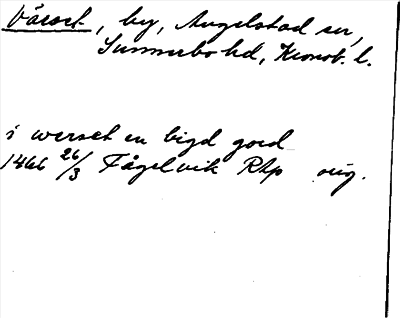 Värset, by, Angelstad sn,
Sunnerbo hd, Kronob. l.
i werset en bigd gord
1466 26/3 Fågelvik Rtp orig.